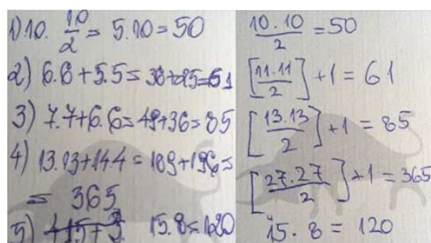 1) 10. 10/2 = 5.10 = 50
2) 6.6+5.5 = 36+25=61
3) 7.7+6.6=49+36=85
4) 13.13+14.14 = 169+196=
= 365
5) 15.8=120
10.10/2 =50
[11.11/2] +1 = 61
[13.13/2] +1 = 85
[27.27/2] +1 =365
15. 8 = 120